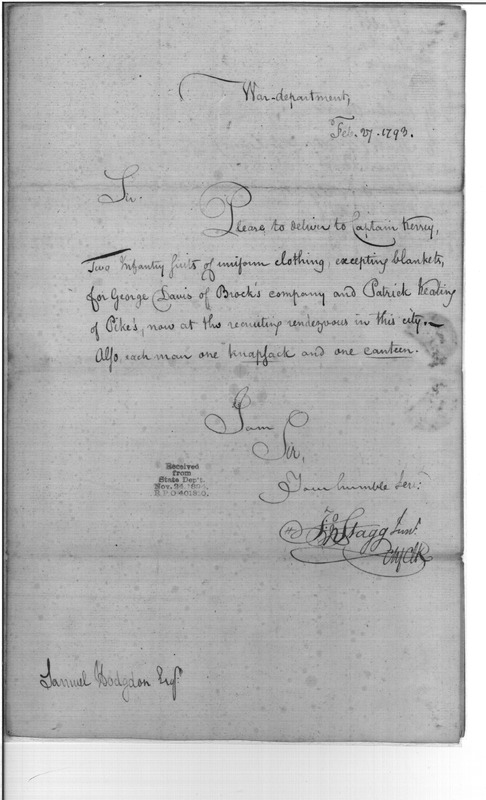 War-department,
Feb. 27. 1793.
Sir.
Please to deliver to Captain Kersey,
Two Infantry suits of uniform clothing, excepting blankets,
for George Davis of Brock's company and Patrick Keating
of Pike's, now at the recruiting rendezvous in this city.—
Also, each man one knapsack and one canteen.
I am
Sir,
Your humble Servt
Received
from
State Dep't.
Nov. 24, 
Jno Stagg Junr.
Ch. Clk
Samuel Hodgdon Esqr.